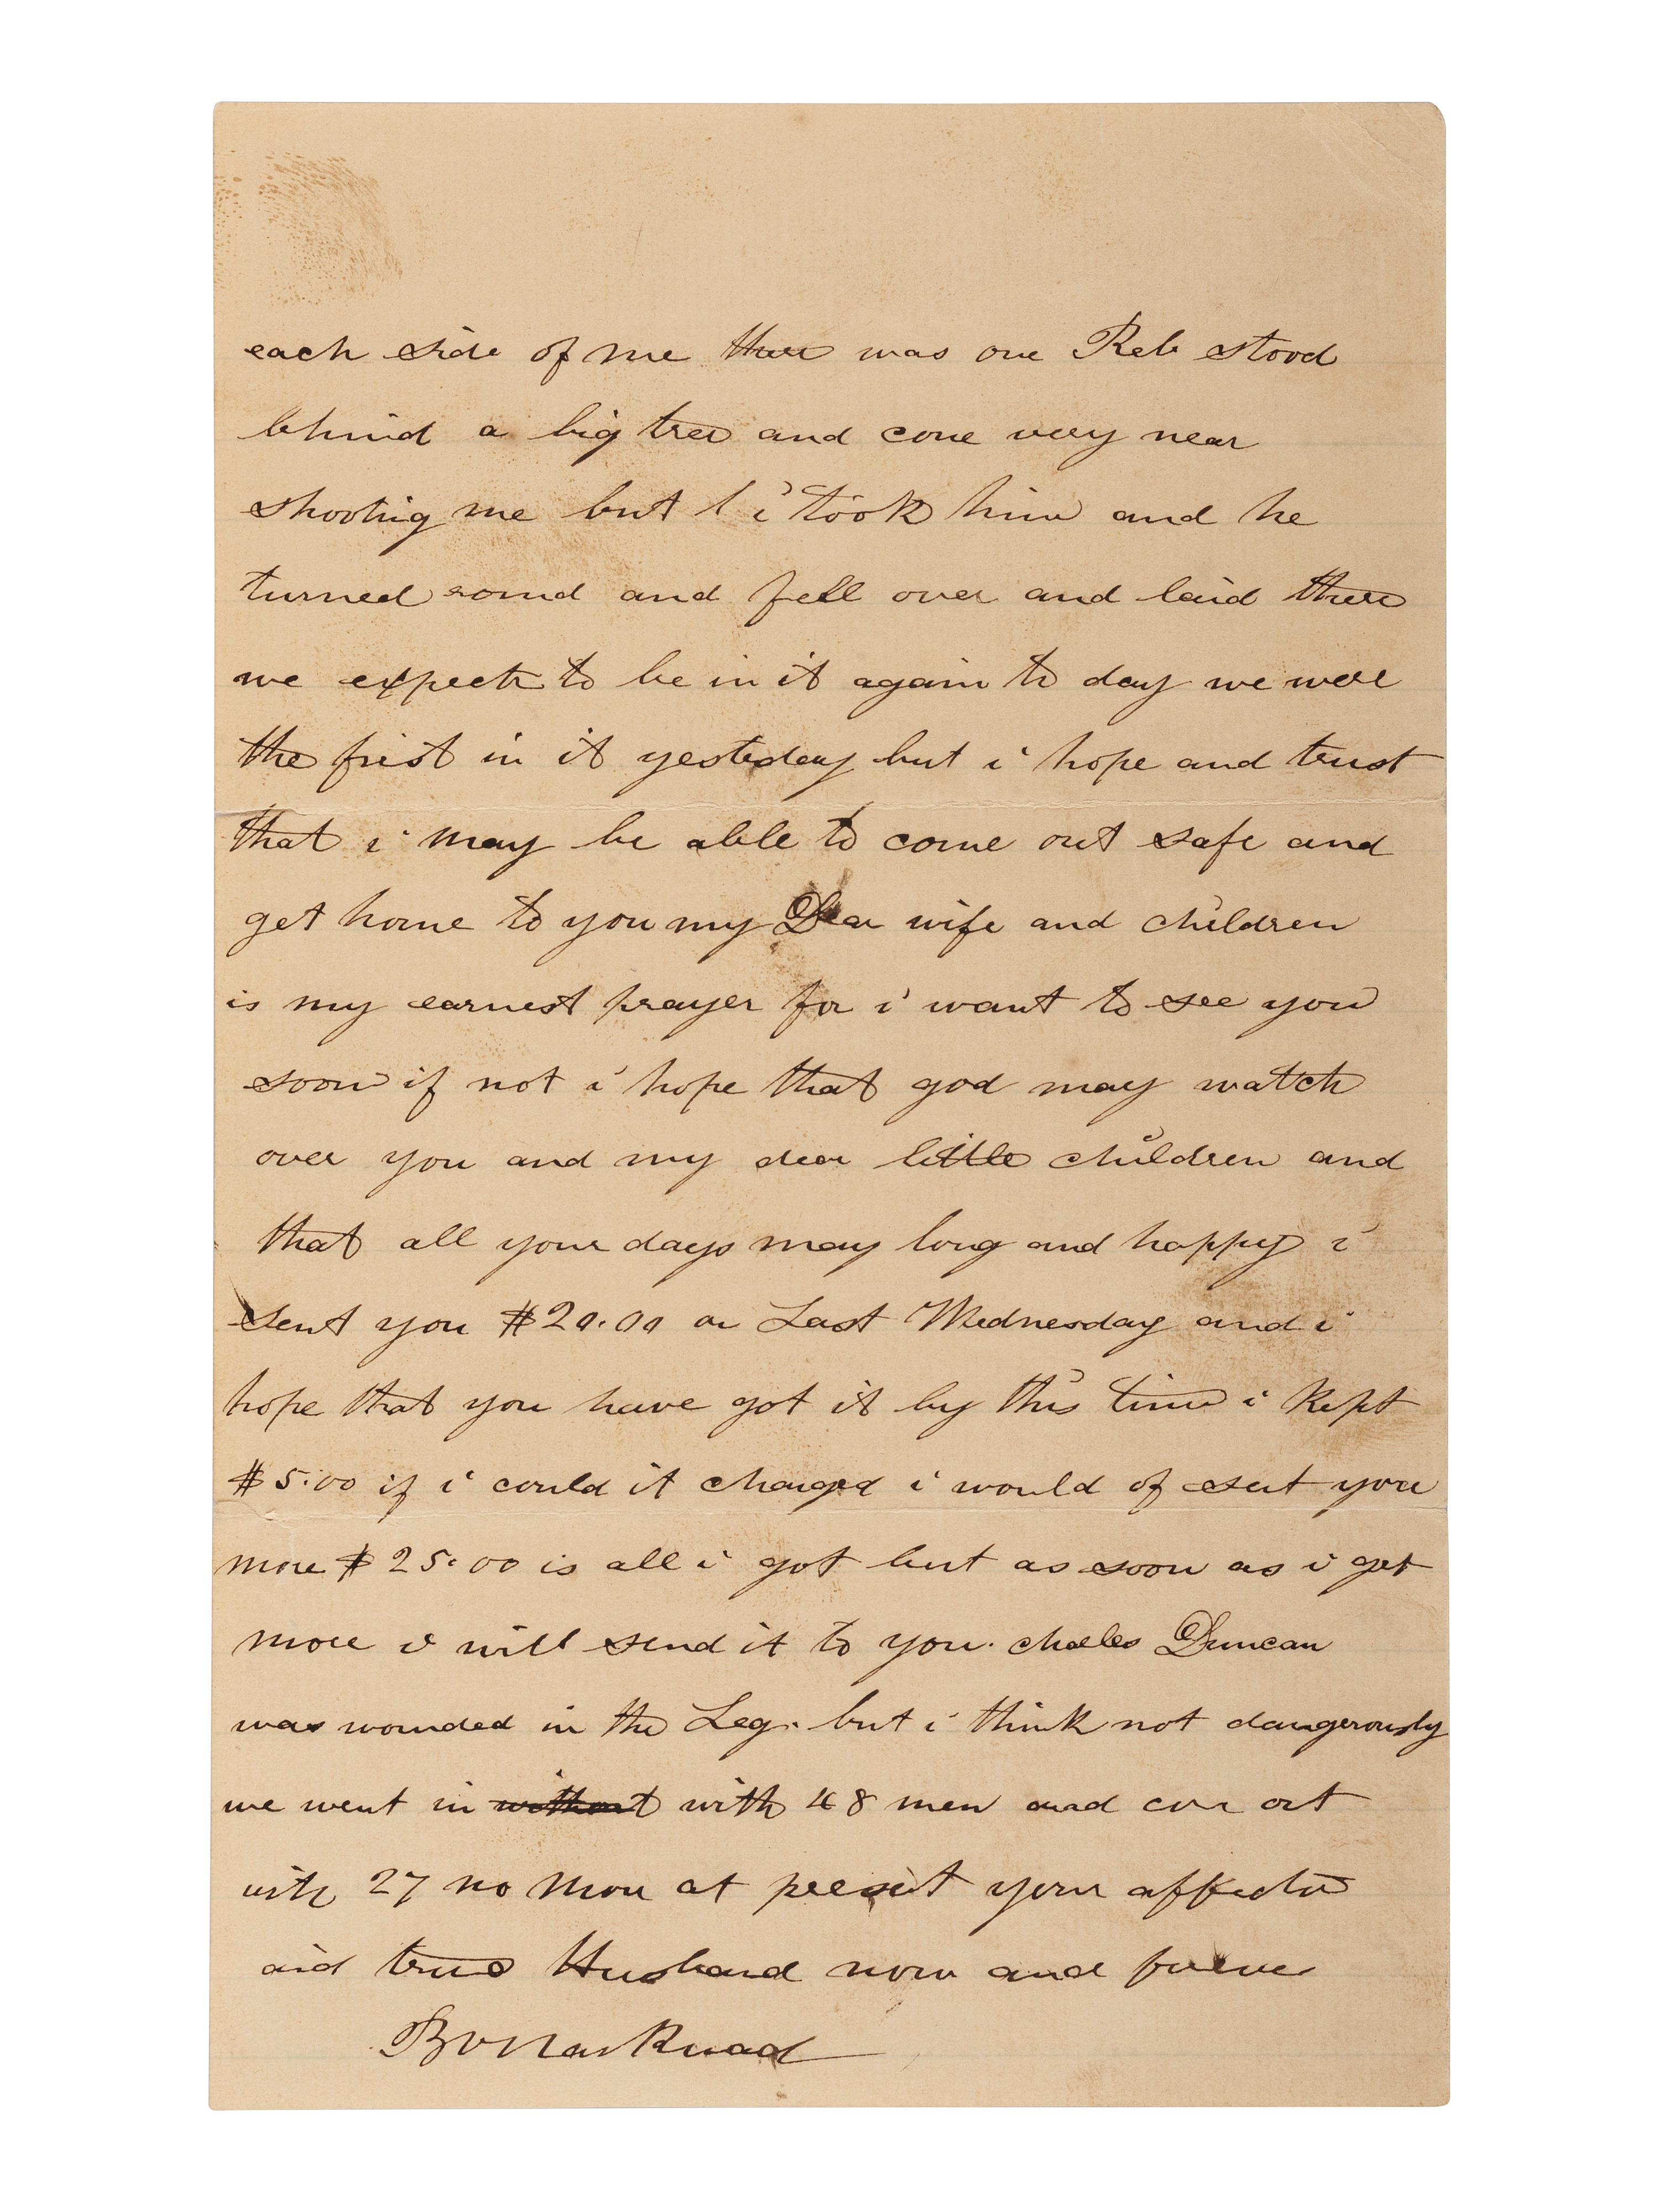 each side of me there was one Reb stood
behind a big tree and come very near
shooting me but i took him and he
turned round and fell over and laid there
we expect to be in it again to day we were
the frist in it yesteday but i hope and trust
that i may be able to come out safe and
get home to you my Dear wife and children
is my earnest prayer for i want to see you
soon if not i hope that god may watch
over you and my dear little children and
that all your days may long and happy i
sent you $20.00 on Last Wednesday and i
hope that you have got it by this time i kept
$5.00 if i could it changed i would of sent you
more $25.00 is all i got but as soon as i get
more i will send it to you. Duncan
was wounded in the Leg. but i think not dangerously
we went in without with 48 men and com out
with 27 no more at present your
and true Husband now and